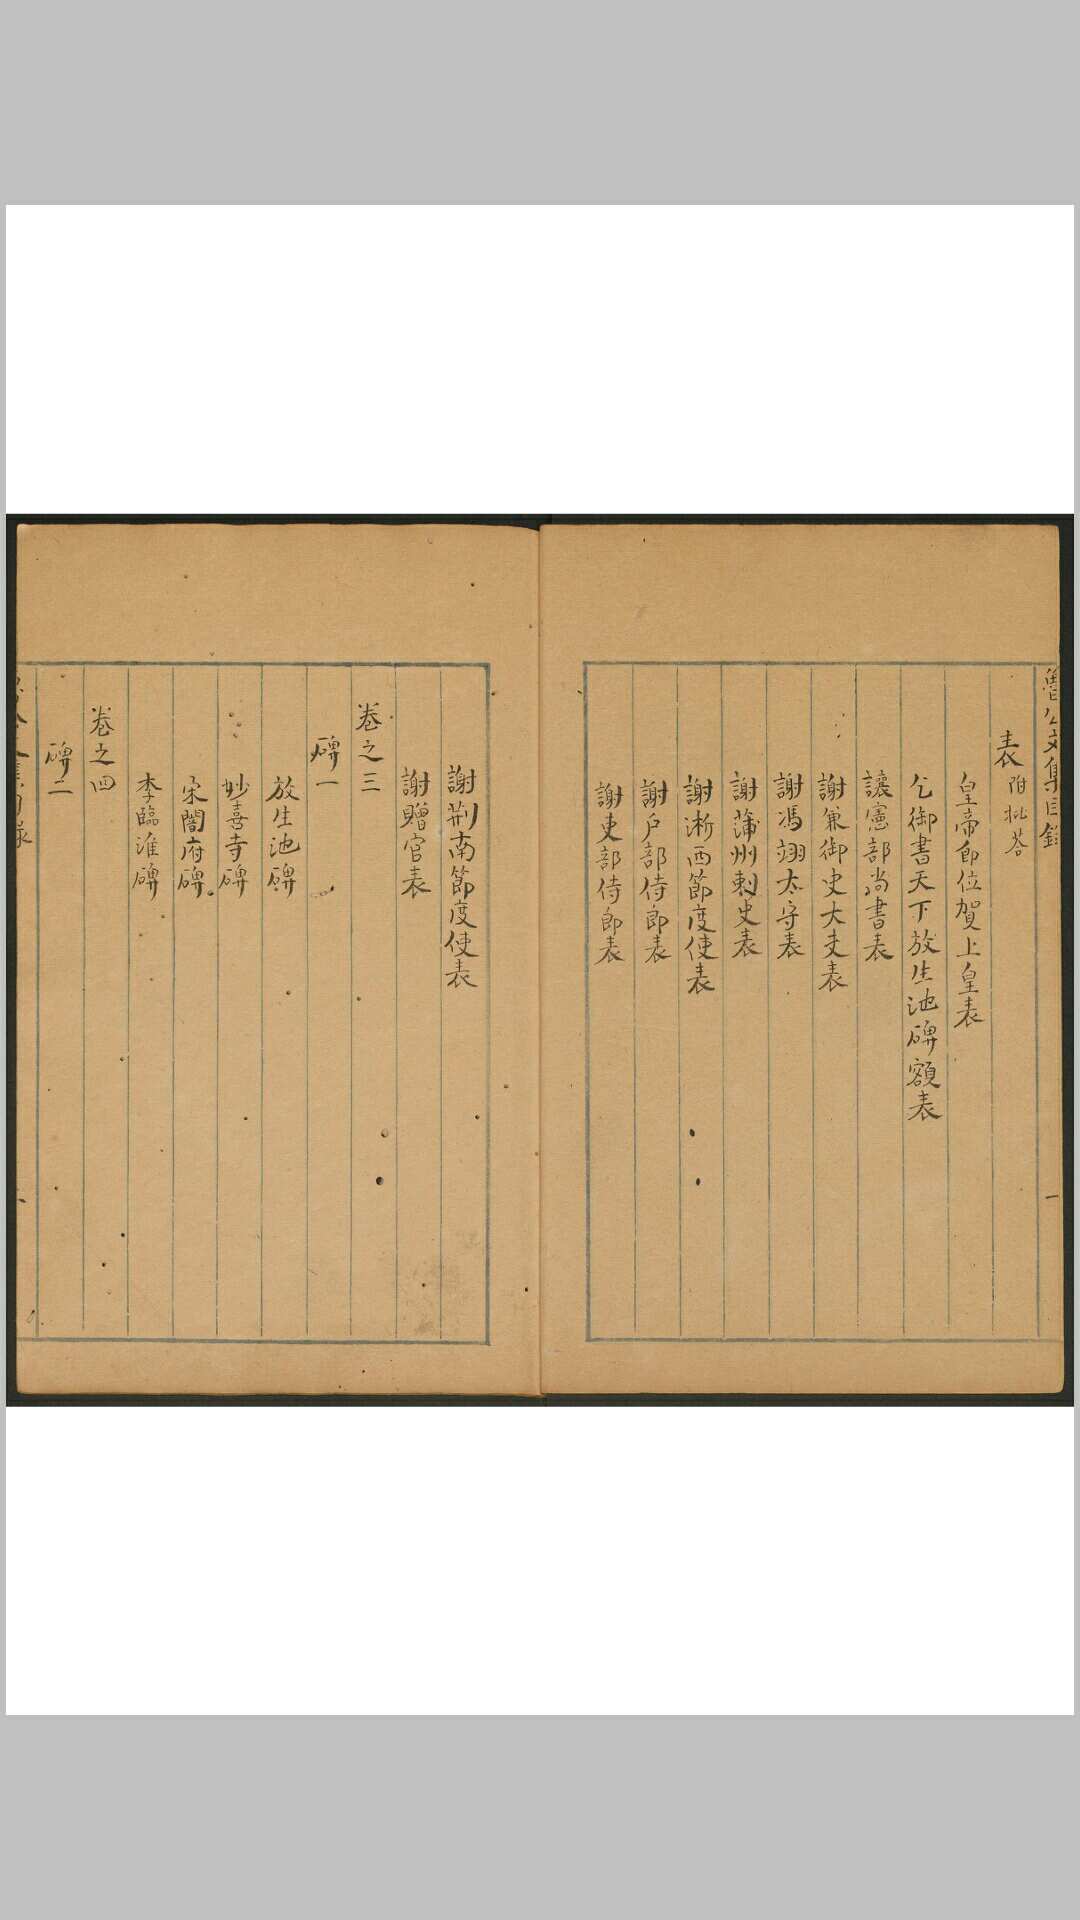 魯公文集目錄
表附批荅
皇帝即位賀上皇表
乞御書天下放生池碑額表
讓憲部尚書表
謝兼御史大夫表
謝馮翊太守表
謝蒲州刺史表
謝淅西節度使表
謝户部侍郎表
謝吏部侍郎表
一
謝荊南節度使表
謝贈官表
卷之三
碑一
放生池碑
妙喜寺碑
宋開府碑
李臨淮碑
卷之四
碑二